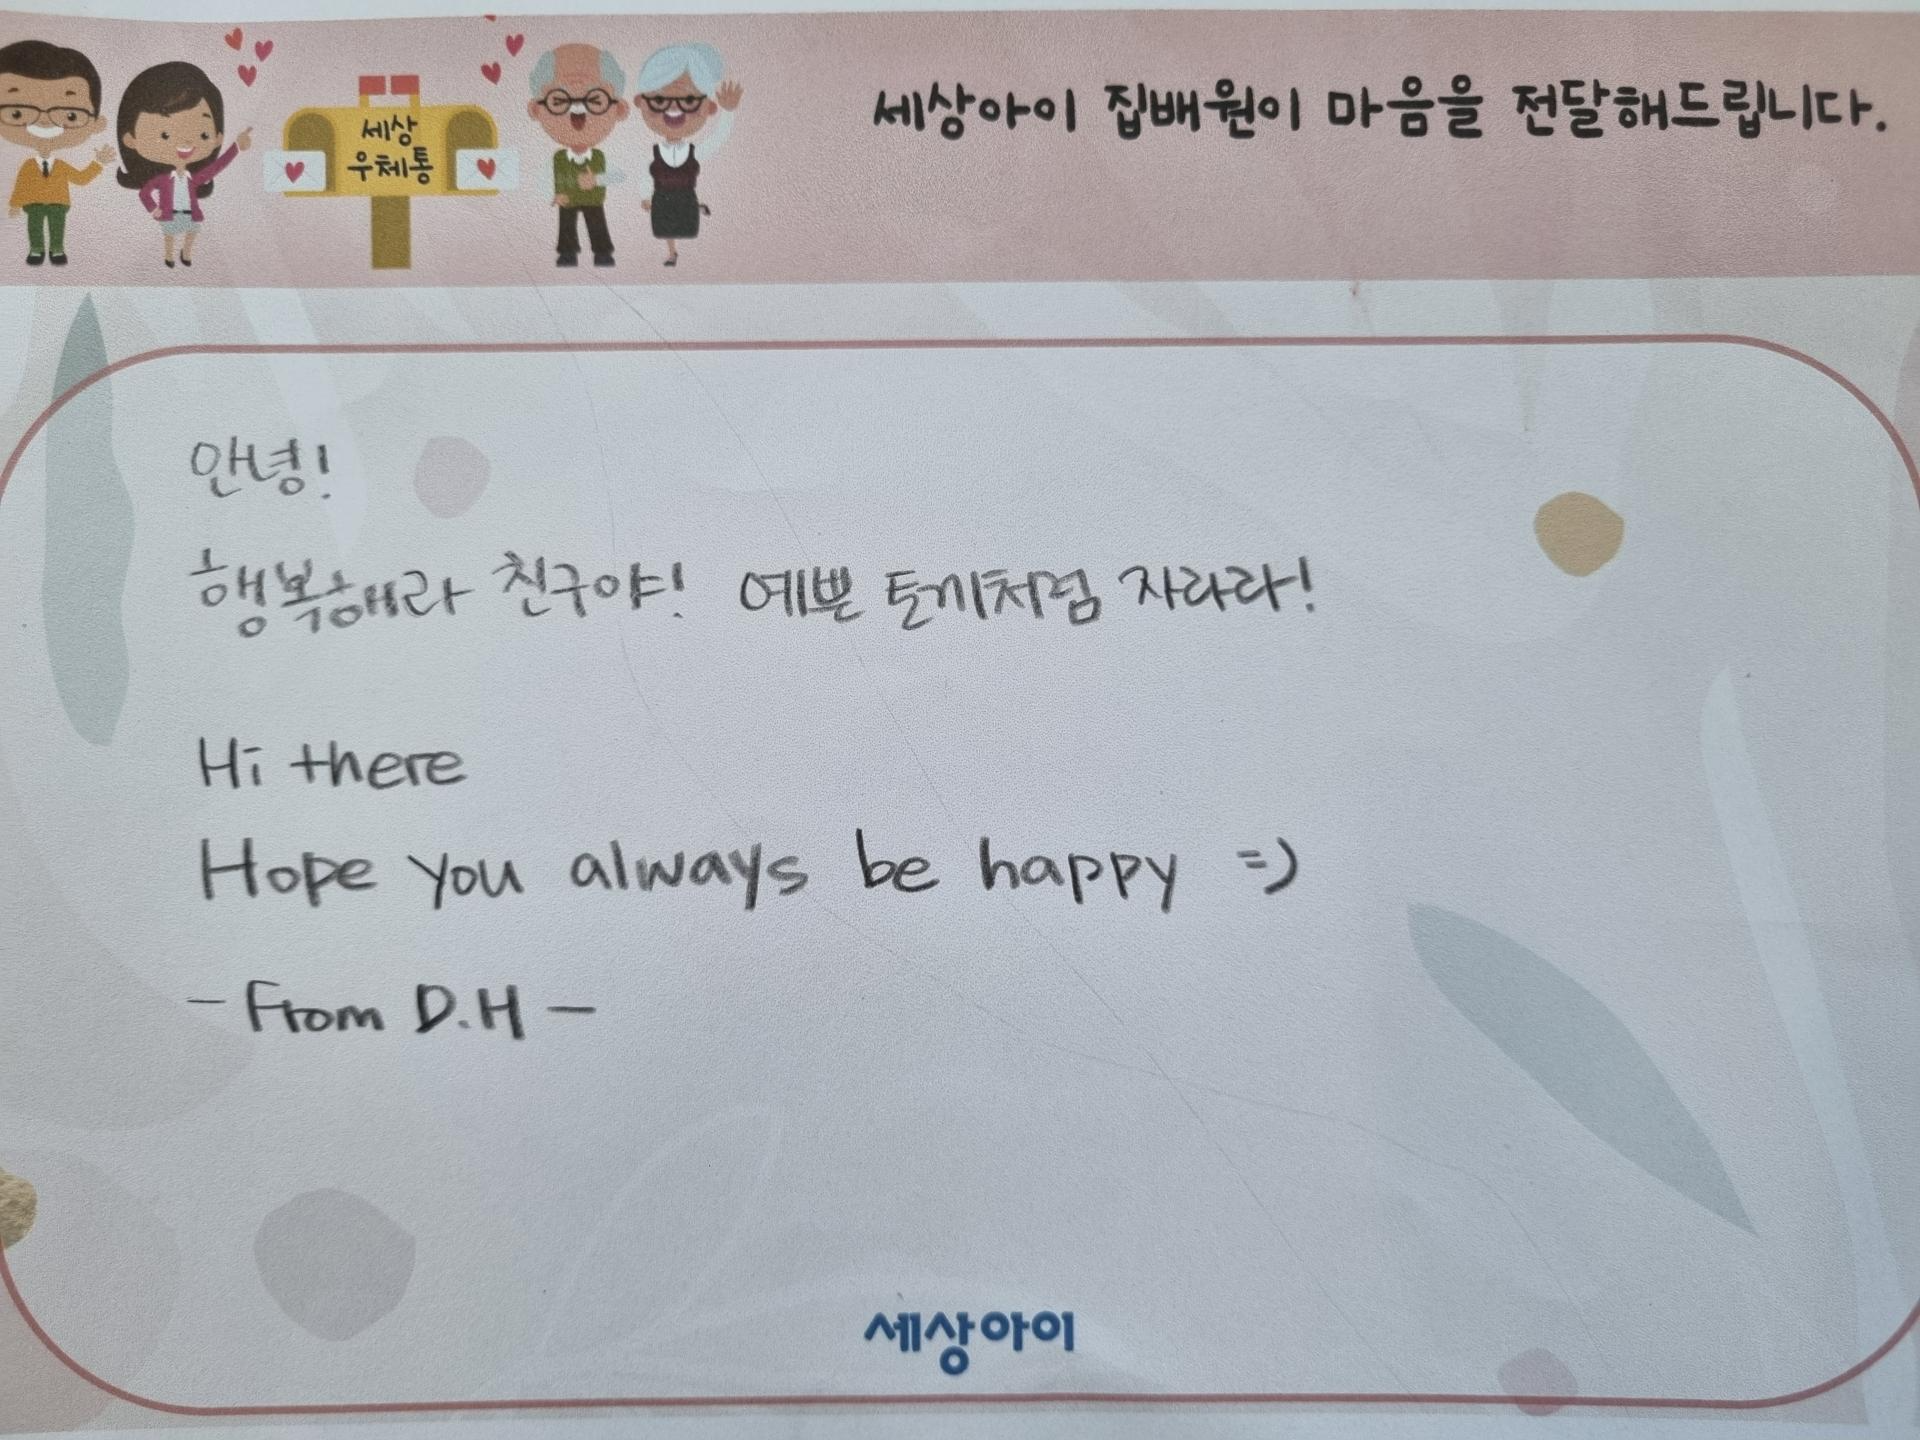 세상아이 집배원이 마음을 전달해드립니다.
세상
우체통
안녕!
행복해라 친구야! 예쁜 토끼처럼 자라라!
Hi there
Hope you always be happy =)
- From D.H -
세상아이